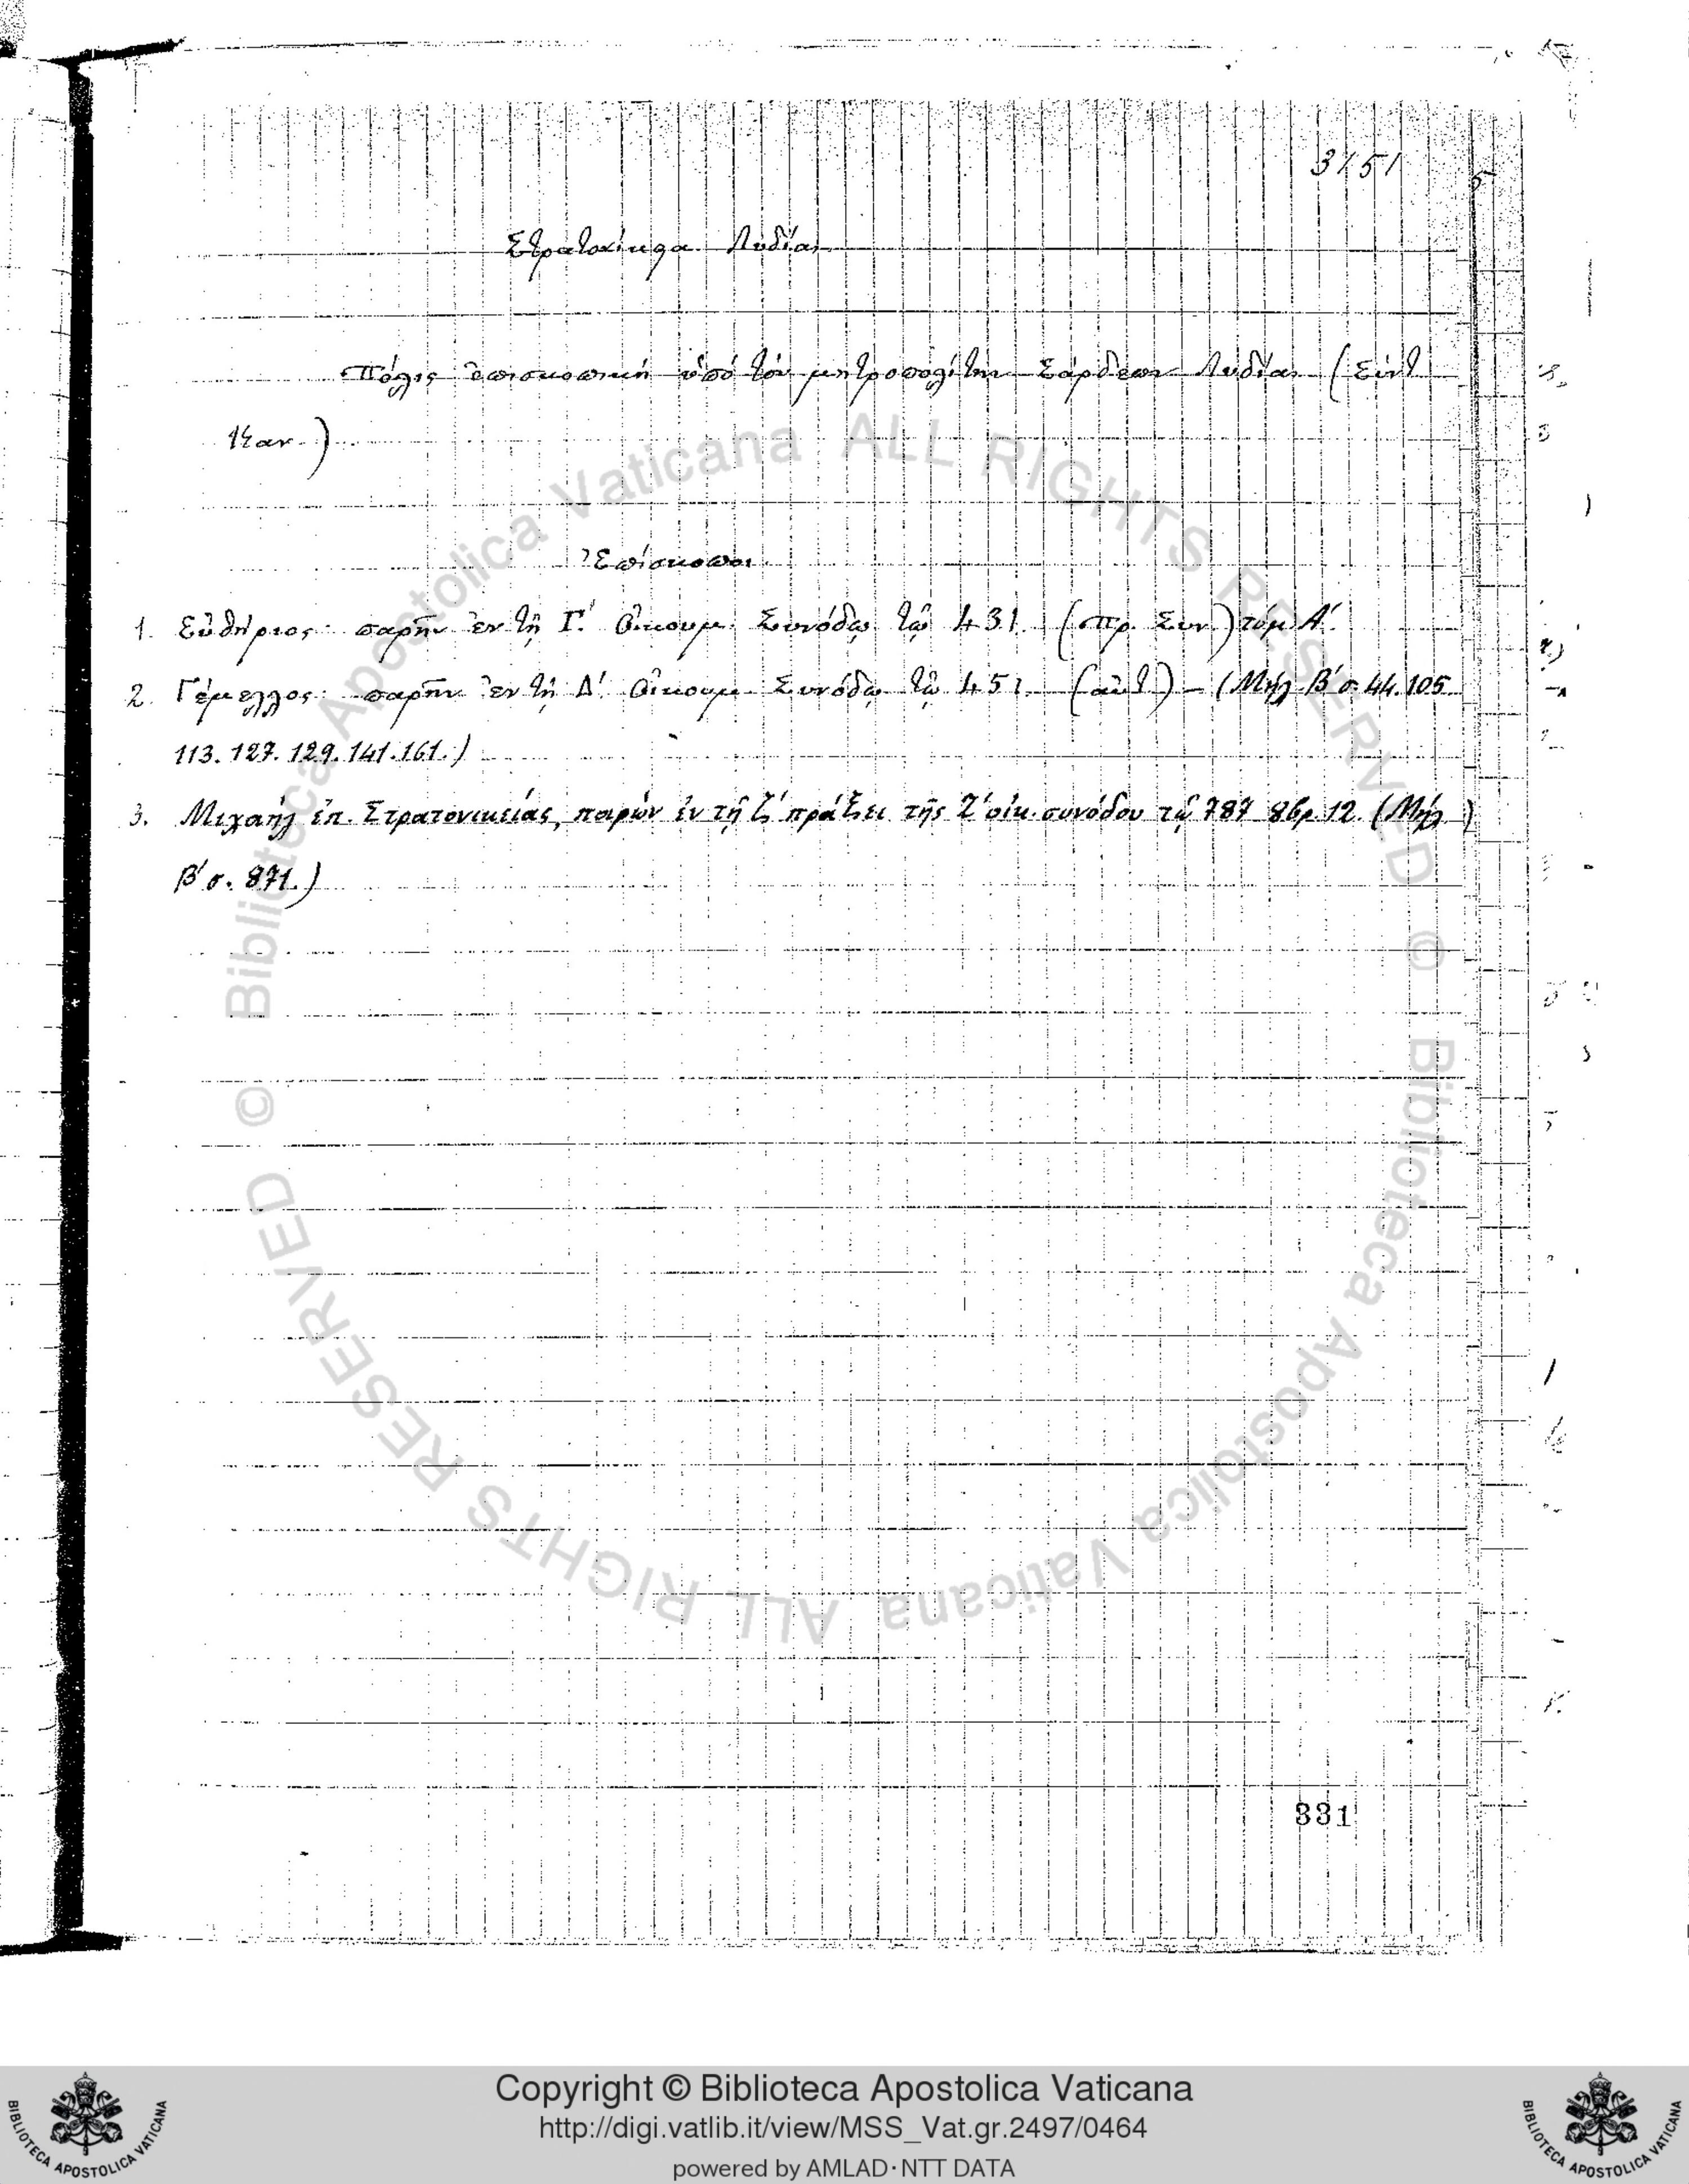 3151
Στρατονίκεια Λυδίας
Πόλις ἐπισκοπική ὑπό τόν μητροπολίτην Σάρδεων Λυδίας (Σύντ
Καν.)
Ἐπίσκοποι
1. Εὐθήριος: παρῆν ἐν τῇ Γ΄. Οἰκουμ. Συνόδῳ τῷ 431. (Πρ. Συν.) τόμ. Α΄.
2. Γέμελλος: παρῆν ἐν τῇ Δ΄. Οἰκουμ. Συνόδῳ τῷ 451. (αὐτ) – (Μήλ Β΄ σ. 44. 105
113. 127. 129. 141. 161.)
3. Μιχαήλ ἐπ. Στρατονικείας, παρών ἐν τῇ ζ΄ πράξει τῆς Ζ΄ οἰκ. συνόδου τῷ 787 8βρ. 12. (Μήλ.
Β΄ σ. 871.)
331
© Biblioteca Apostolica Vaticana ALL RIGHTS RESERVED © Biblioteca Apostolica Vaticana ALL RIGHTS RESERVED
Copyright © Biblioteca Apostolica Vaticana
http://digi.vatlib.it/view/MSS_Vat.gr.2497/0464
powered by AMLAD·NTT DATA
BIBLIOTECA APOSTOLICA VATICANA
BIBLIOTECA APOSTOLICA VATICANA